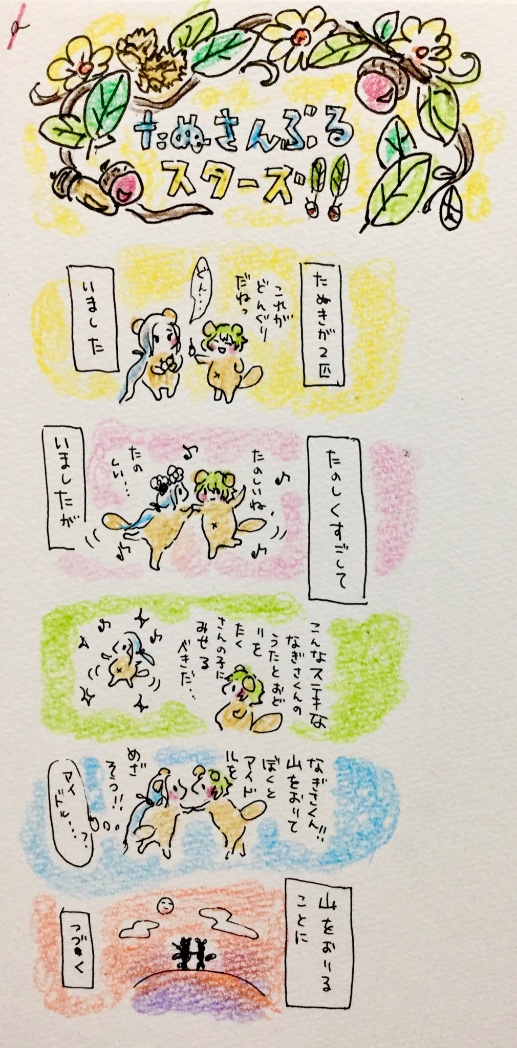 たぬさんぶる
スターズ!!
たぬきが2匹
これが
どんぐり
だねっ
どん…
いました
たのしくすごして
たのしいね
たの
しい…
いましたが
こんなステキな
なぎさくんの
うたとおど
りを
たく
さんの子に
みせる
べきだ…
なぎさくん!!
山をおりて
ぼくと
アイド
ルを
めざ
そう!!
アイドル…?
山をおりる
ことに
つづく